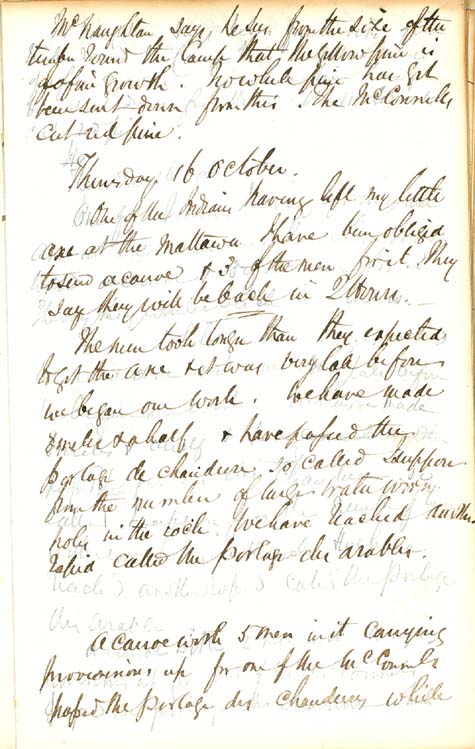 McNaughton says he sees from the size of the
timber round the Camp that the yellow pine is
of fair growth. no white pine has yet
been sent down from this. The McConnells
cut red pine.
Thursday 16 October.
One of the Indians having left my little
axe at the Mattawa I have been obliged
to send a canoe & 3 of the men for it. They
say they will be back in 2 Hours.
The men took longer than they expected
to get the axe & it was very late before
we began our work. We have made
miles & a half & have passed the
portage de chaudiere so called I suppose
from the number of large water worn
holes in the rock. We have reached another
rapid called the portage des arables.
A canoe with 5 men in it carrying
provisions up for one of the McConnels
passed the portage des chaudieres while